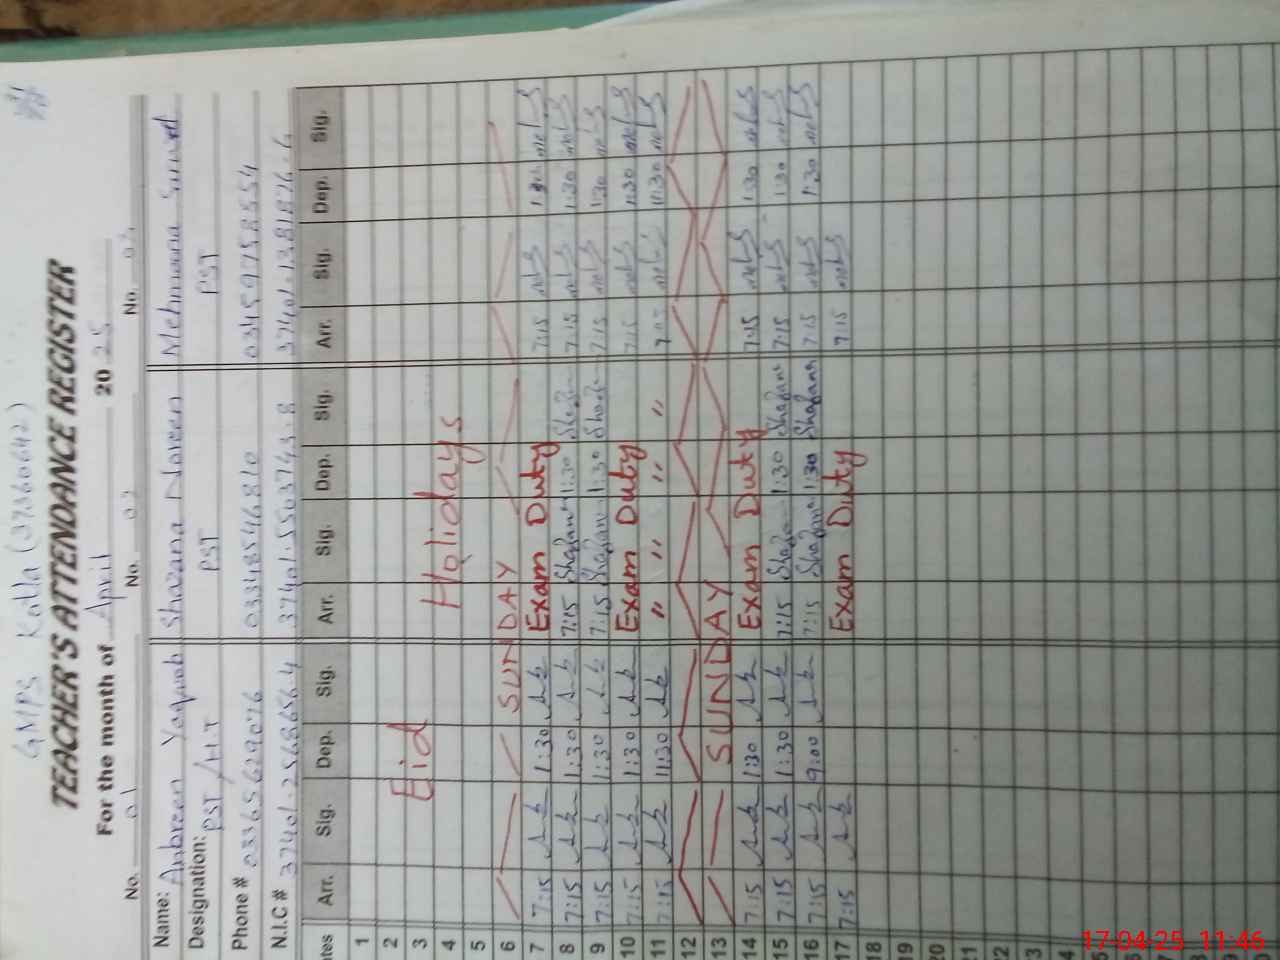 GMPS Kolla (37360642)
TEACHER'S ATTENDANCE REGISTER
For the month of April 20 25
No. 01 No. 02 No. 03
Name: Anbreen Yaqoob Shazana Noreen Mehmoona
Designation: PST / H.T PST PST
Phone # 03365629076 03348546810 03459758554
N.I.C # 37401.2568656.4 37401.5503743.8 37401.1381826.6
tes Arr. Sig. Dep. Sig. Arr. Sig. Dep. Sig. Arr. Sig. Dep. Sig.
1
2
3 Eid
4 Holidays
5
6 SUNDAY
7 7:15 1:30 Exam Duty 7:15 1:30
8 7:15 1:30 7:15 Shazana 1:30 7:15 1:30
9 7:15 1:30 7:15 Shazana 1:30 7:15 1:30
10 7:15 1:30 Exam Duty 7:15 1:30
11 7:15 11:30 " " " " 7:05 11:30
12
13 SUNDAY
14 7:15 1:30 Exam Duty 7:15 1:30
15 7:15 1:30 7:15 Shazana 1:30 Shazana 7:15 1:30
16 7:15 9:00 7:15 Shazana 1:30 Shazana 7:15 1:30
17 7:15 Exam Duty 7:15
18
19
20
21
22
23
17-04-25 11:46